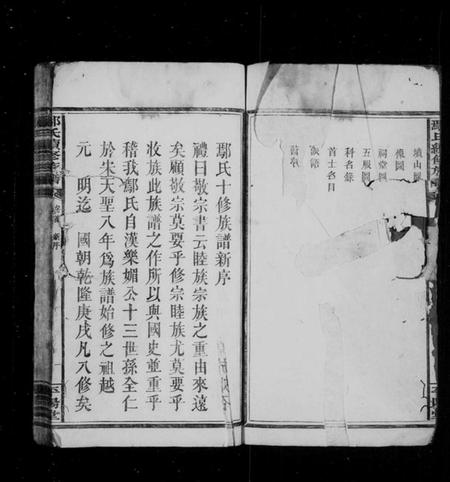 墳山圖
像圖
祠堂圖
五服圖
科名錄
首士名目
鄢氏十修族譜新序
禮曰敬宗書云睦族宗族之重由來遠
矣顧敬宗莫要乎修宗睦族尤莫要乎
收族此族譜之作所以與國史並重乎
稽我鄢氏自漢樂媚公十三世孫全仁
於宋天聖八年爲族譜始修之祖越
元 明迄 國朝乾隆庚戌凡八修矣